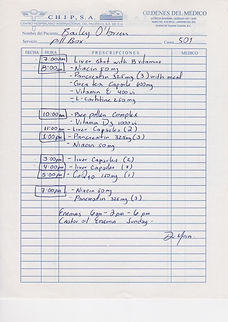 C.H.I.P.S.A. ORDENES DEL MEDICO
CENTRO HOSPITALARIO INTERNACIONAL DEL PACIFICO, S.A. DE C.V.
Nombre del Paciente: Bailey O'Brien
Servicio: pill Box Cuarto: 501
FECHA HORA PRESCRIPCIONES MEDICO
7:00am - Liver shot with B vitamins
8:00am - Niacin 50mg
- Pancreatin 325mg (3) with meal
- Green tea Capsule 600mg
- Vitamin E 400iu
- L-carnitine 250mg
10:00am - Bee pollen Complex
- Vitamin D3 1000iu
11:00am - Liver Capsules (2)
1:00pm - Pancreatin 325mg (3)
- Niacin 50mg
3:00pm - Liver Capsules (2)
4:00pm - Liver Capsules
5:00pm - CoQ10 (1)
7:00pm - Niacin 50mg
- Pancreatin 325mg (3)
Enemas 6am - 2pm - 6pm
Castor oil Enema Sunday -